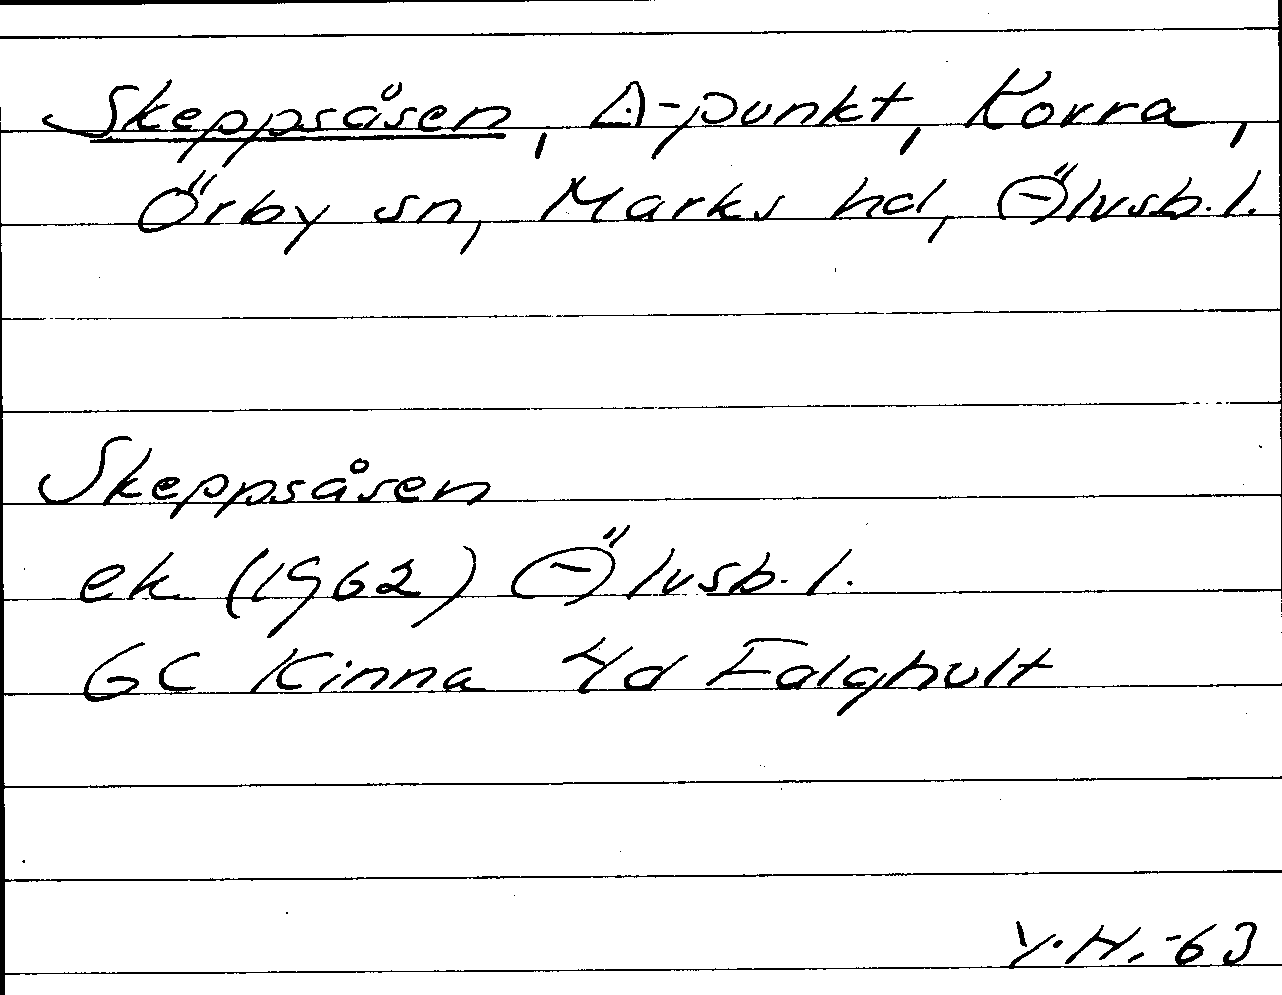 Skeppsåsen, Δ-punkt, Korra,
Örby sn, Marks hd, Älvsb. l.
Skeppsåsen
ek (1962) Älvsb. l.
GC Kinna 4d Falghult
Y.H. -63